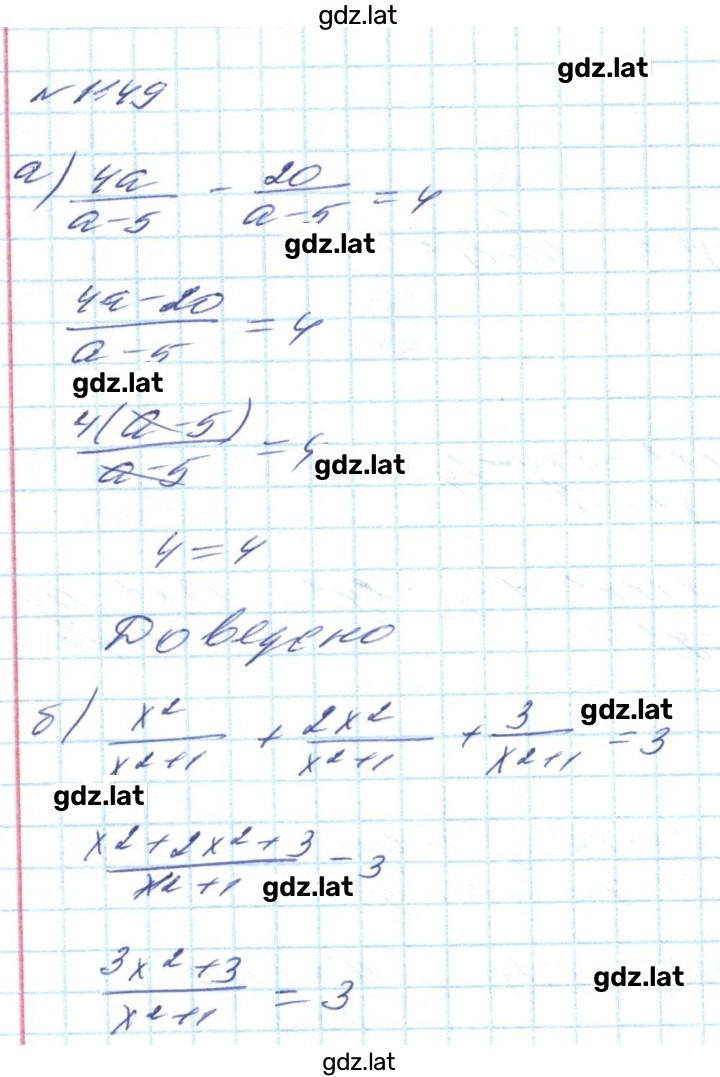 gdz.lat
gdz.lat
№ 1149
а) 4a/(a-5) - 20/(a-5) = 4
gdz.lat
(4a-20)/(a-5) = 4
gdz.lat
4(a-5)/(a-5) = 4
gdz.lat
4 = 4
Доведено
б) x²/(x²+1) + 2x²/(x²+1) + 3/(x²+1) = 3
gdz.lat
gdz.lat
(x²+2x²+3)/(x²+1) = 3
gdz.lat
(3x²+3)/(x²+1) = 3
gdz.lat
gdz.lat